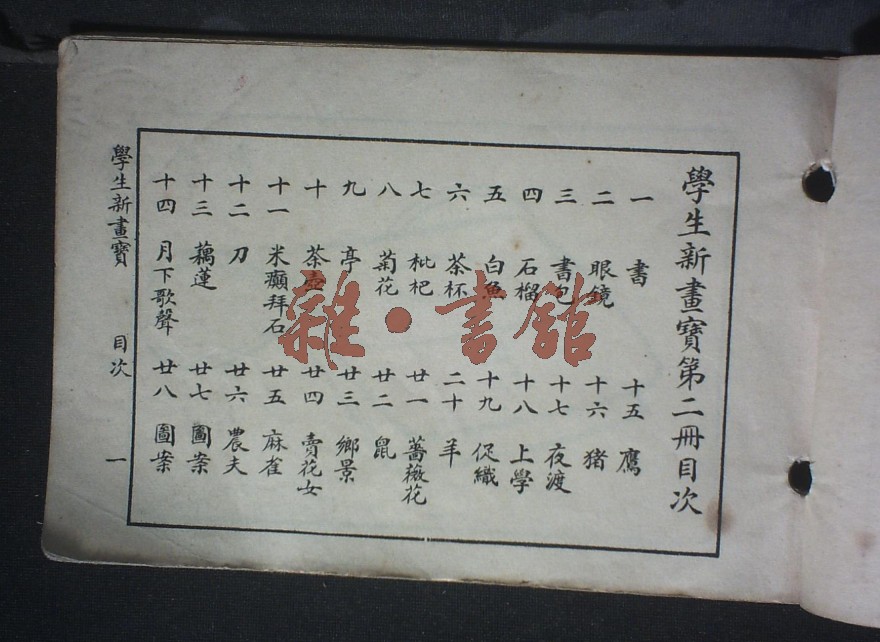 學生新畫寶第二冊目次
一 書 十五 鷹
二 眼鏡 十六 猪
三 書包 十七 夜渡
四 石榴 十八 上學
五 白魚 十九 促織
六 茶杯 二十 羊
七 枇杷 廿一 薔薇花
八 菊花 廿二 鼠
九 亭 廿三 鄉景
十 茶壺 廿四 賣花女
十一 米癲拜石 廿五 麻雀
十二 刀 廿六 農夫
十三 藕蓮 廿七 圖案
十四 月下歌聲 廿八 圖案
學生新畫寶 目次 一
雜·書館